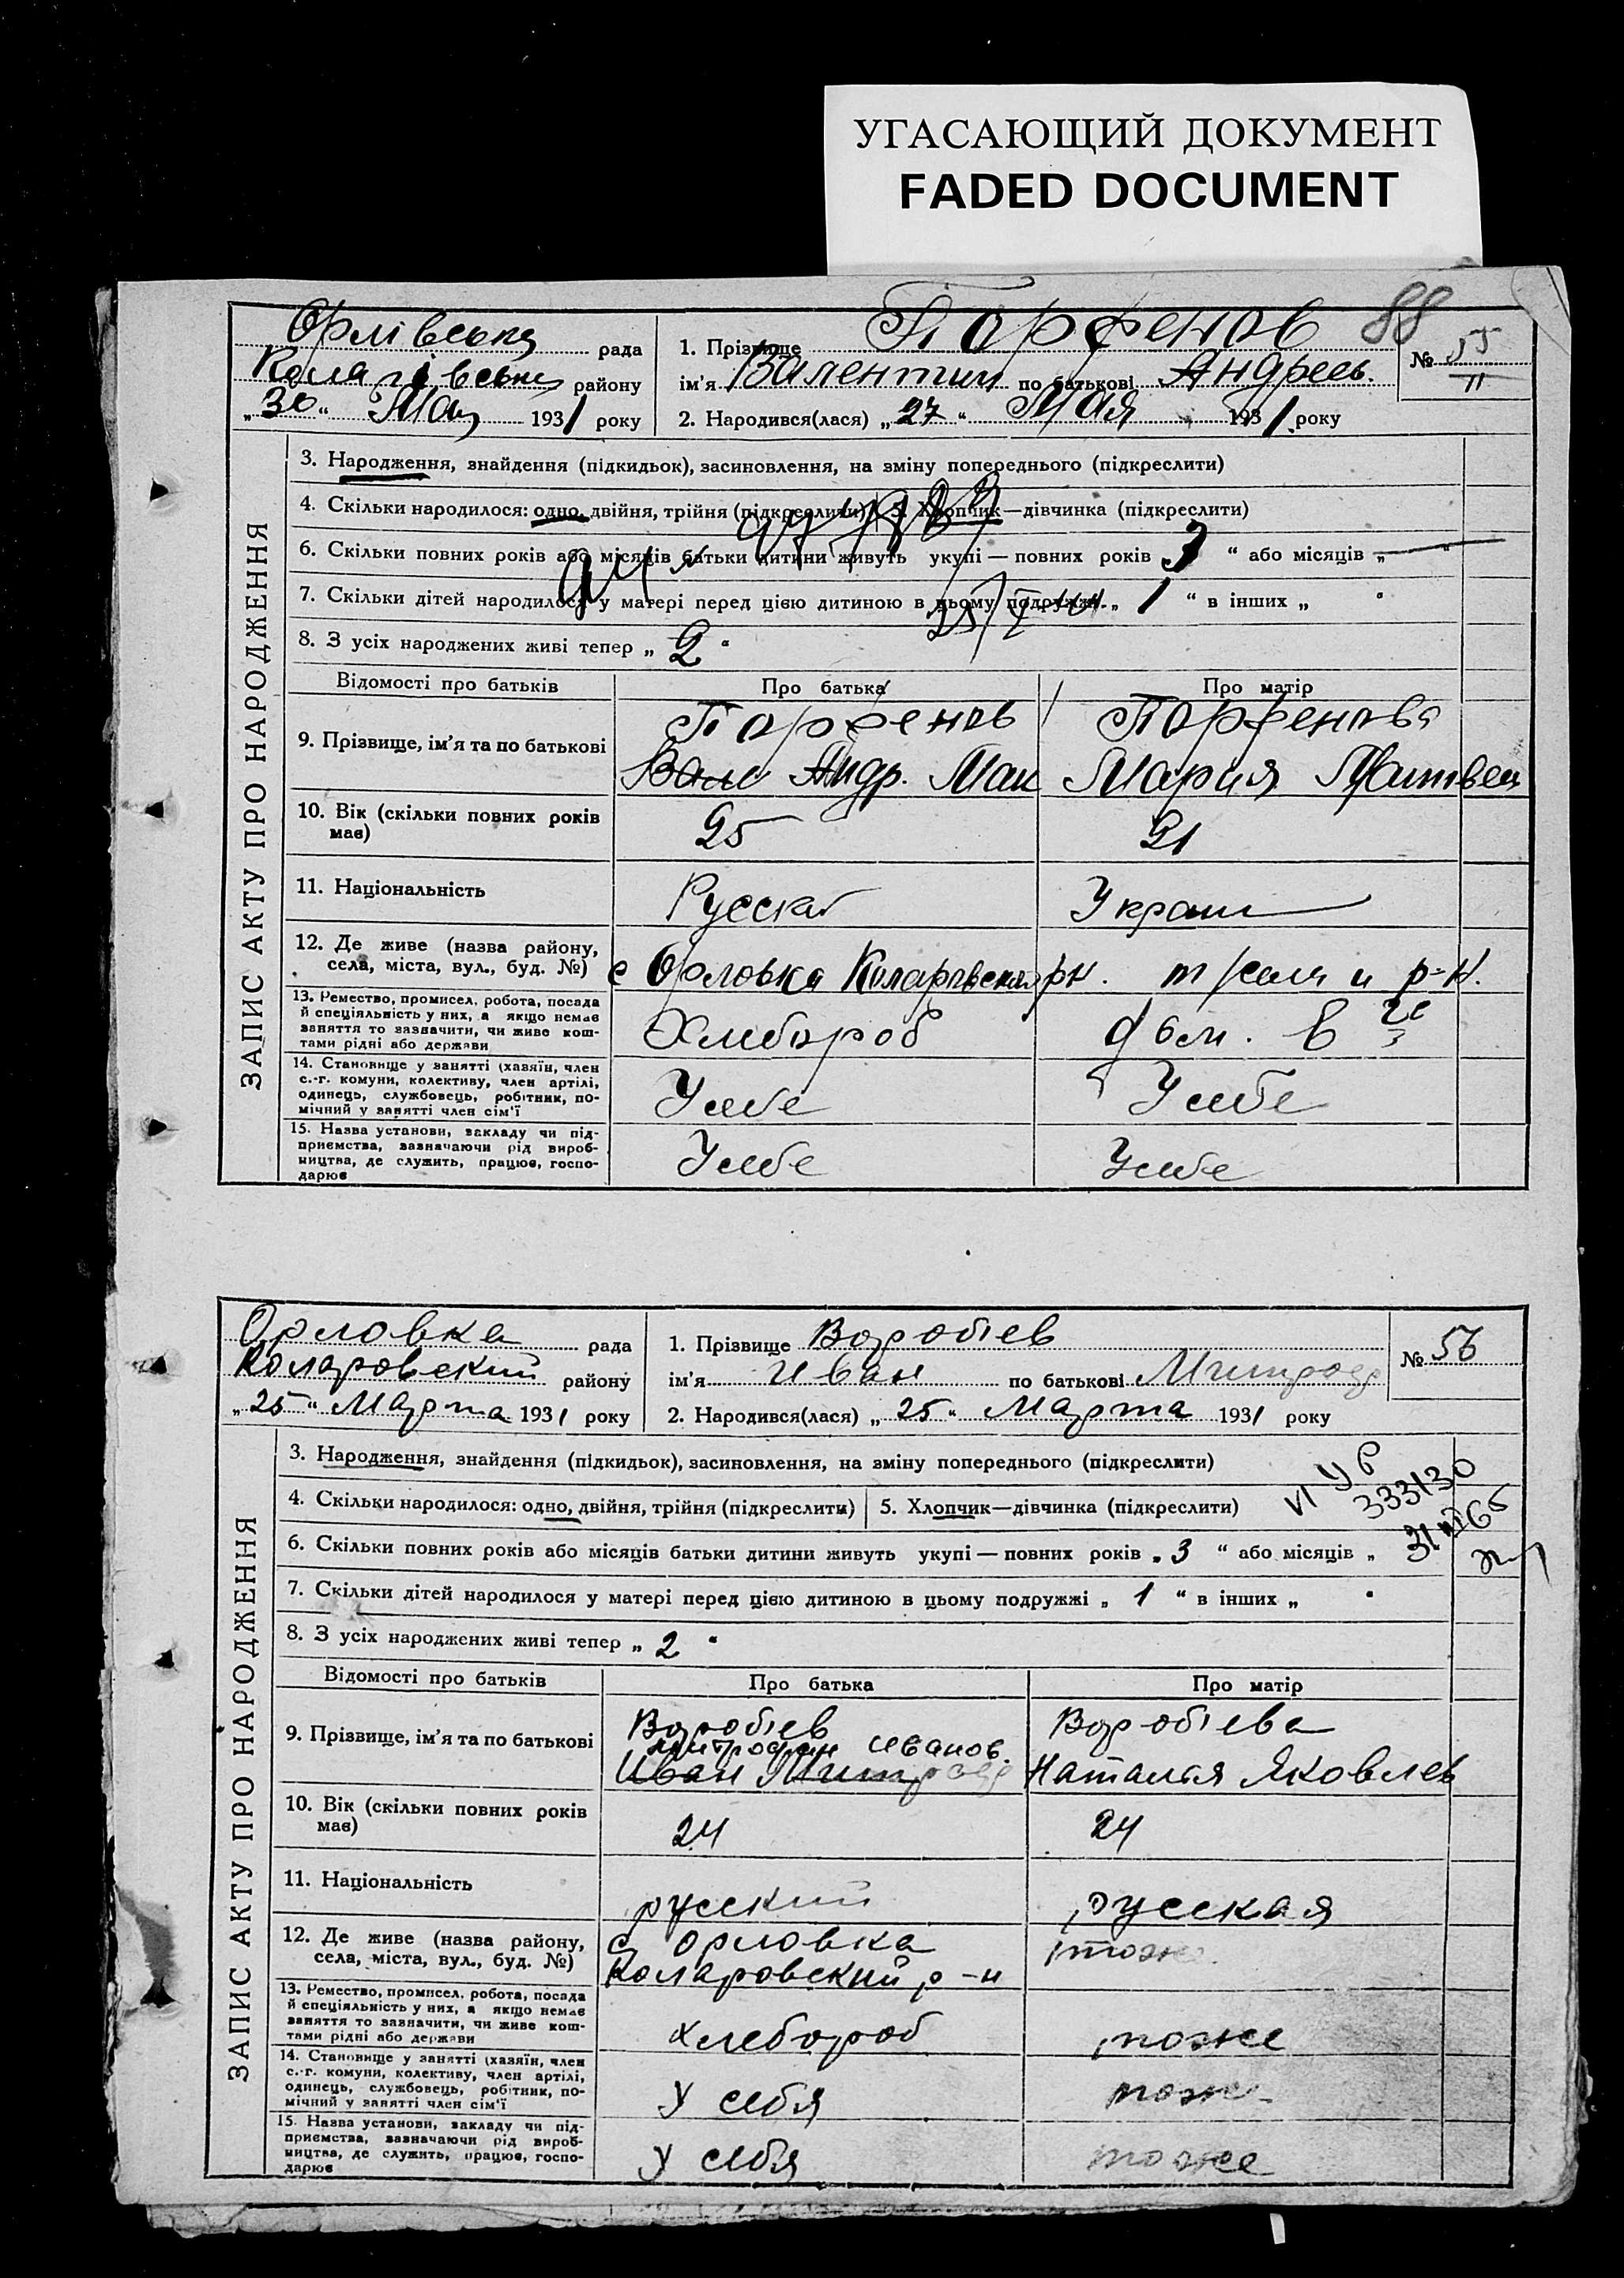 УГАСАЮЩИЙ ДОКУМЕНТ
FADED DOCUMENT
88
Орлівська рада
району
„30“ Мая 1931 року
1. Прізвище Парфенов
ім'я Валентин по батькові Андреев.
2. Народився(лася) „27“ Мая 1931 року
№ 55
11
ЗАПИС АКТУ ПРО НАРОДЖЕННЯ
3. Народження, знайдення (підкидьок), засиновлення, на зміну попереднього (підкреслити)
4. Скільки народилося: одно, двійня, трійня (підкреслити) 5. Хлопчик—дівчинка (підкреслити)
6. Скільки повних років або місяців батьки дитини живуть укупі — повних років 3 “ або місяців „ — “
7. Скільки дітей народилося у матері перед цією дитиною в цьому подружжі „ 1 “ в інших „ “
8. З усіх народжених живі тепер „ 2 “
Відомості про батьків Про батька Про матір
9. Прізвище, ім'я та по батькові
Парфенов Парфенова
Андр. Мак Мария Матвеев
10. Вік (скільки повних років
має)
25 21
11. Національність
Украин
12. Де живе (назва району,
села, міста, вул., буд. №)
с Орловка рн. р-н.
13. Ремество, промисел, робота, посада
й спеціяльність у них, а якщо немає
заняття то зазначити, чи живе кош-
тами рідні або держави
Хлебороб
14. Становище у занятті (хазяїн, член
с.-г. комуни, колективу, член артілі,
одинець, службовець, робітник, по-
мічний у занятті член сім'ї
У себе У себе
15. Назва установи, закладу чи під-
приємства, зазначаючи рід вироб-
ництва, де служить, працює, госпо-
дарює
У себе У себе
Орловка рада
Коларовский району
„25“ Марта 1931 року
1. Прізвище Воробіев
ім'я Иван по батькові Митроф
2. Народився(лася) „25“ Марта 1931 року
№ 56
ЗАПИС АКТУ ПРО НАРОДЖЕННЯ
3. Народження, знайдення (підкидьок), засиновлення, на зміну попереднього (підкреслити)
4. Скільки народилося: одно, двійня, трійня (підкреслити) 5. Хлопчик—дівчинка (підкреслити)
VI УР
333130
6. Скільки повних років або місяців батьки дитини живуть укупі — повних років „3 “ або місяців „
7. Скільки дітей народилося у матері перед цією дитиною в цьому подружжі „ 1 “ в інших „ “
8. З усіх народжених живі тепер „ 2 “
Відомості про батьків Про батька Про матір
9. Прізвище, ім'я та по батькові
Воробіев Воробіева
Митрофан Иванов.
Иван Митроф Наталья Яковлев
10. Вік (скільки повних років
має)
24 24
11. Національність
русский русская
12. Де живе (назва району,
села, міста, вул., буд. №)
с Орловка тоже
Коларовский р-н
13. Ремество, промисел, робота, посада
й спеціяльність у них, а якщо немає
заняття то зазначити, чи живе кош-
тами рідні або держави
хлебороб тоже
14. Становище у занятті (хазяїн, член
с.-г. комуни, колективу, член артілі,
одинець, службовець, робітник, по-
мічний у занятті член сім'ї
У себя тоже
15. Назва установи, закладу чи під-
приємства, зазначаючи рід вироб-
ництва, де служить, працює, госпо-
дарює
У себя тоже